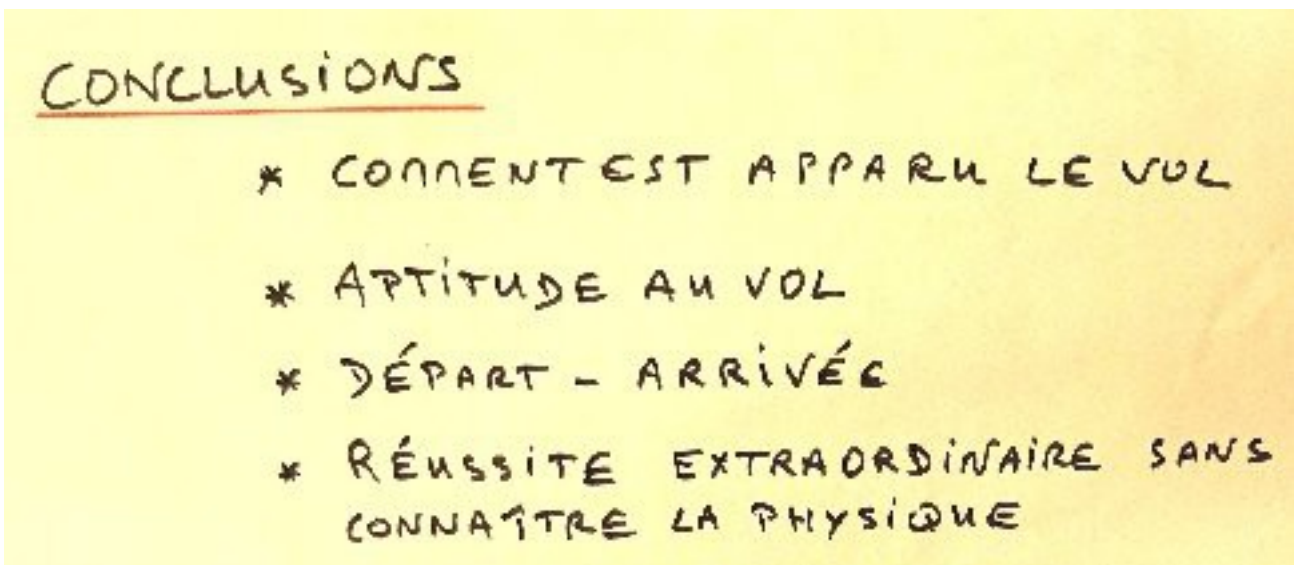 CONCLUSIONS
* COMMENT EST APPARU LE VOL
* APTITUDE AU VOL
* DÉPART - ARRIVÉE
* RÉUSSITE EXTRAORDINAIRE SANS
CONNAÎTRE LA PHYSIQUE